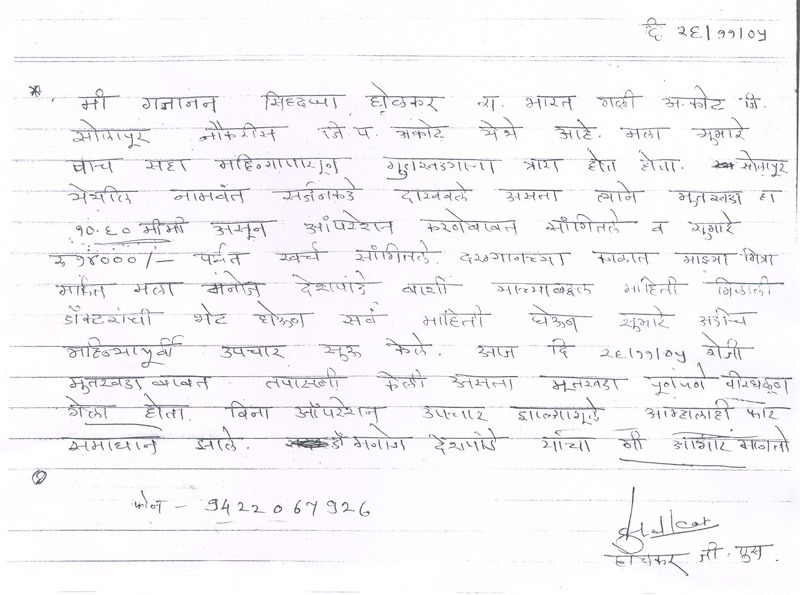 दि २६/११/०५
* मी गजानन सिध्दप्पा होळकर रा. भारत गल्ली अ.कोट जि.
सोलापूर नौकरीस जि.प. अकोट येथे आहे. मला सुमारे
पाच सहा महिन्यापासून मुतखडयाचा त्रास होत होता. सोलापूर
येथील नामवंत सर्जनकडे दाखवले असता त्याने मूतखडा हा
१०.६० मीमी असून ऑपरेशन करणेबाबत सांगितले व सुमारे
रु १४०००/- पर्यंत खर्च सांगितले. दरम्यानच्या काळात माझ्या मित्रा
मार्फत मला मनोज देशपांडे बार्शी याच्याबद्दल माहिती मिळाली
डॉक्टरांची भेट घेऊन सर्व माहिती घेऊन सुमारे अडीच
महिन्यापूर्वी उपचार सुरू केले. आज दि २६/११/०५ रोजी
मुतखडा बाबत तपासणी केली असता मूतखडा पूर्णपणे विरघळून
गेला होता. विना ऑपरेशन उपचार झाल्यामूळे आम्हालाही फार
समाधान झाले. डॉ मनोज देशपांडे यांचा मी आभार मानतो
फोन - 9422067926
होळकर जी. एस.